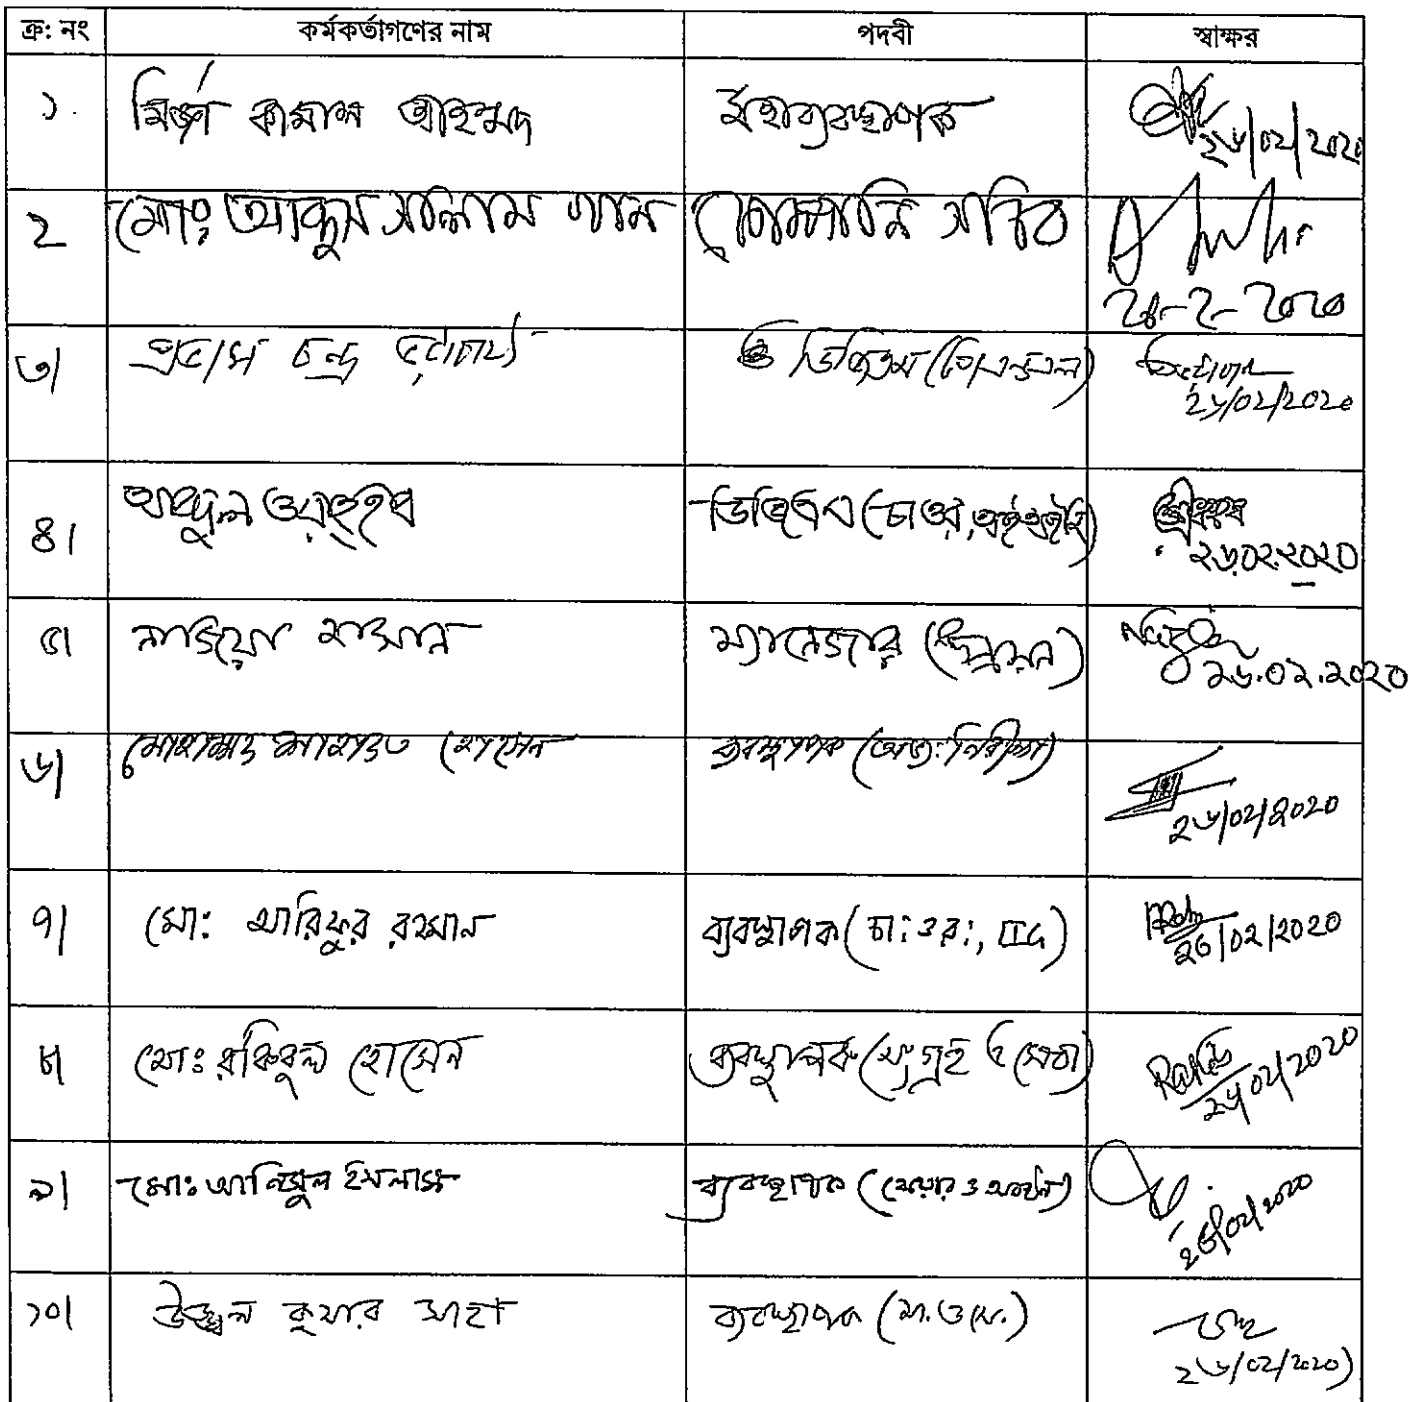 ক্র: নং কর্মকর্তাগণের নাম পদবী স্বাক্ষর
১. মির্জা কামাল আহম্মদ মহাব্যবস্থাপক
২৬/০২/২০২০
২ মোঃ আব্দুস সালাম খান কোম্পানি সচিব
২৬-২-২০২০
৩। প্রভাস চন্দ্র ডিজিএম
২৬/০২/২০২০
৪। আব্দুল ওয়াহাব ডিজিএম
২৬.০২.২০২০
৫। নাজিয়া হাসান ম্যানেজার (উন্নয়ন)
২৬.০২.২০২০
৬। মোহাম্মদ হোসেন ব্যবস্থাপক (অভ্য: নিরীক্ষা)
২৬/০২/২০২০
৭। মো: আরিফুর রহমান ব্যবস্থাপক
২৬/০২/২০২০
৮। মোঃ রকিবুল হোসেন ব্যবস্থাপক (সংগ্রহ ও সেবা)
২৬/০২/২০২০
৯। মোঃ আনিসুল ইসলাম ব্যবস্থাপক
২৬/০২/২০২০
১০। উজ্জ্বল কুমার সাহা ব্যবস্থাপক
২৬/০২/২০২০